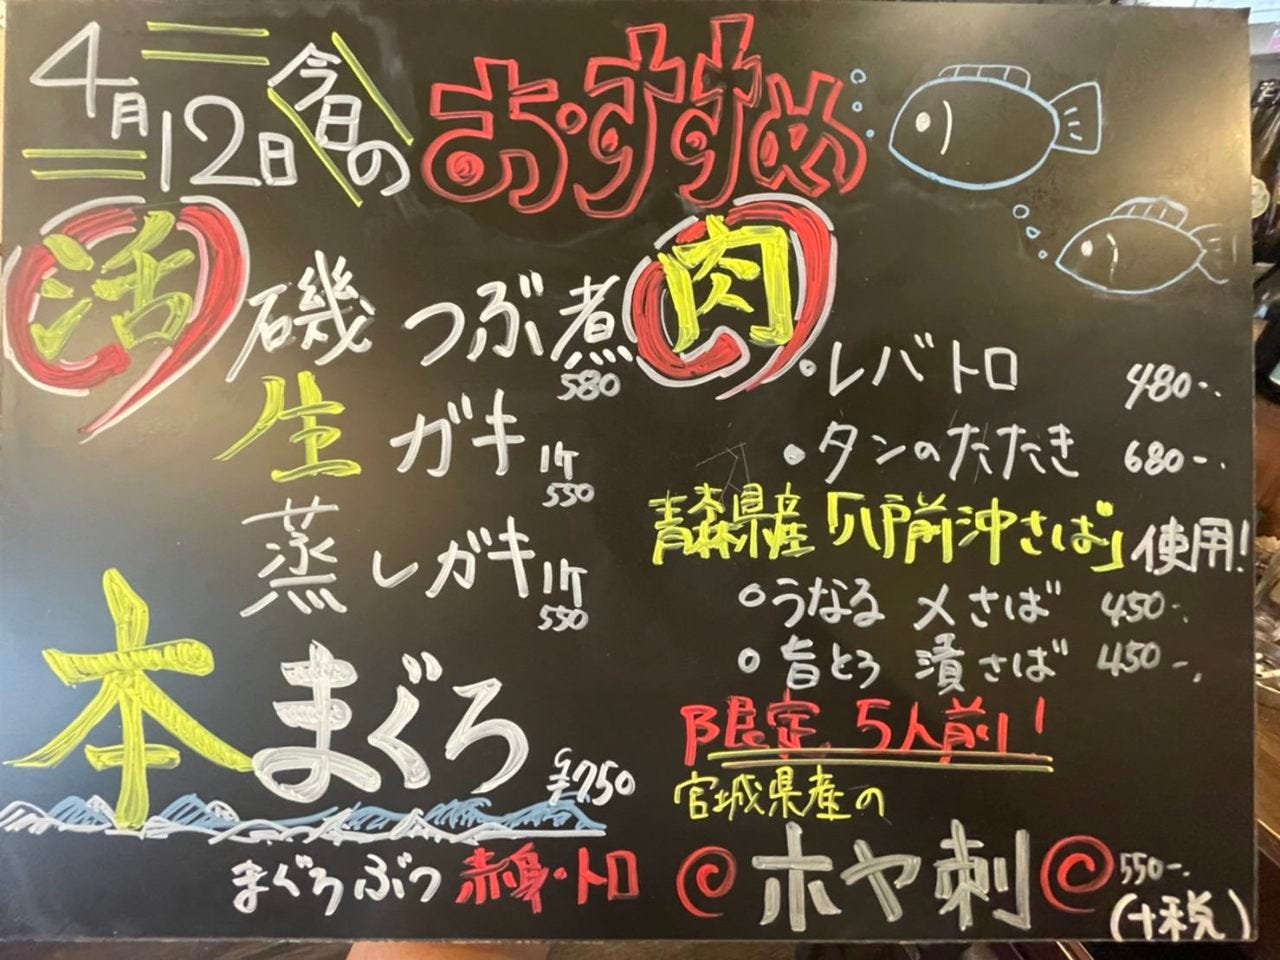 4月12日 今日の おすすめ
活
磯つぶ煮
580
生ガキ 1ケ
550
蒸しガキ 1ケ
550
本まぐろ
¥750
まぐろぶつ 赤身・トロ
肉
・レバトロ 480-.
・タンのたたき 680-.
青森県産「八戸前沖さば」使用!
○うなる〆さば 450-.
○旨とろ漬さば 450-.
限定5人前!!
宮城県産の
ホヤ刺 550-.
(+税)